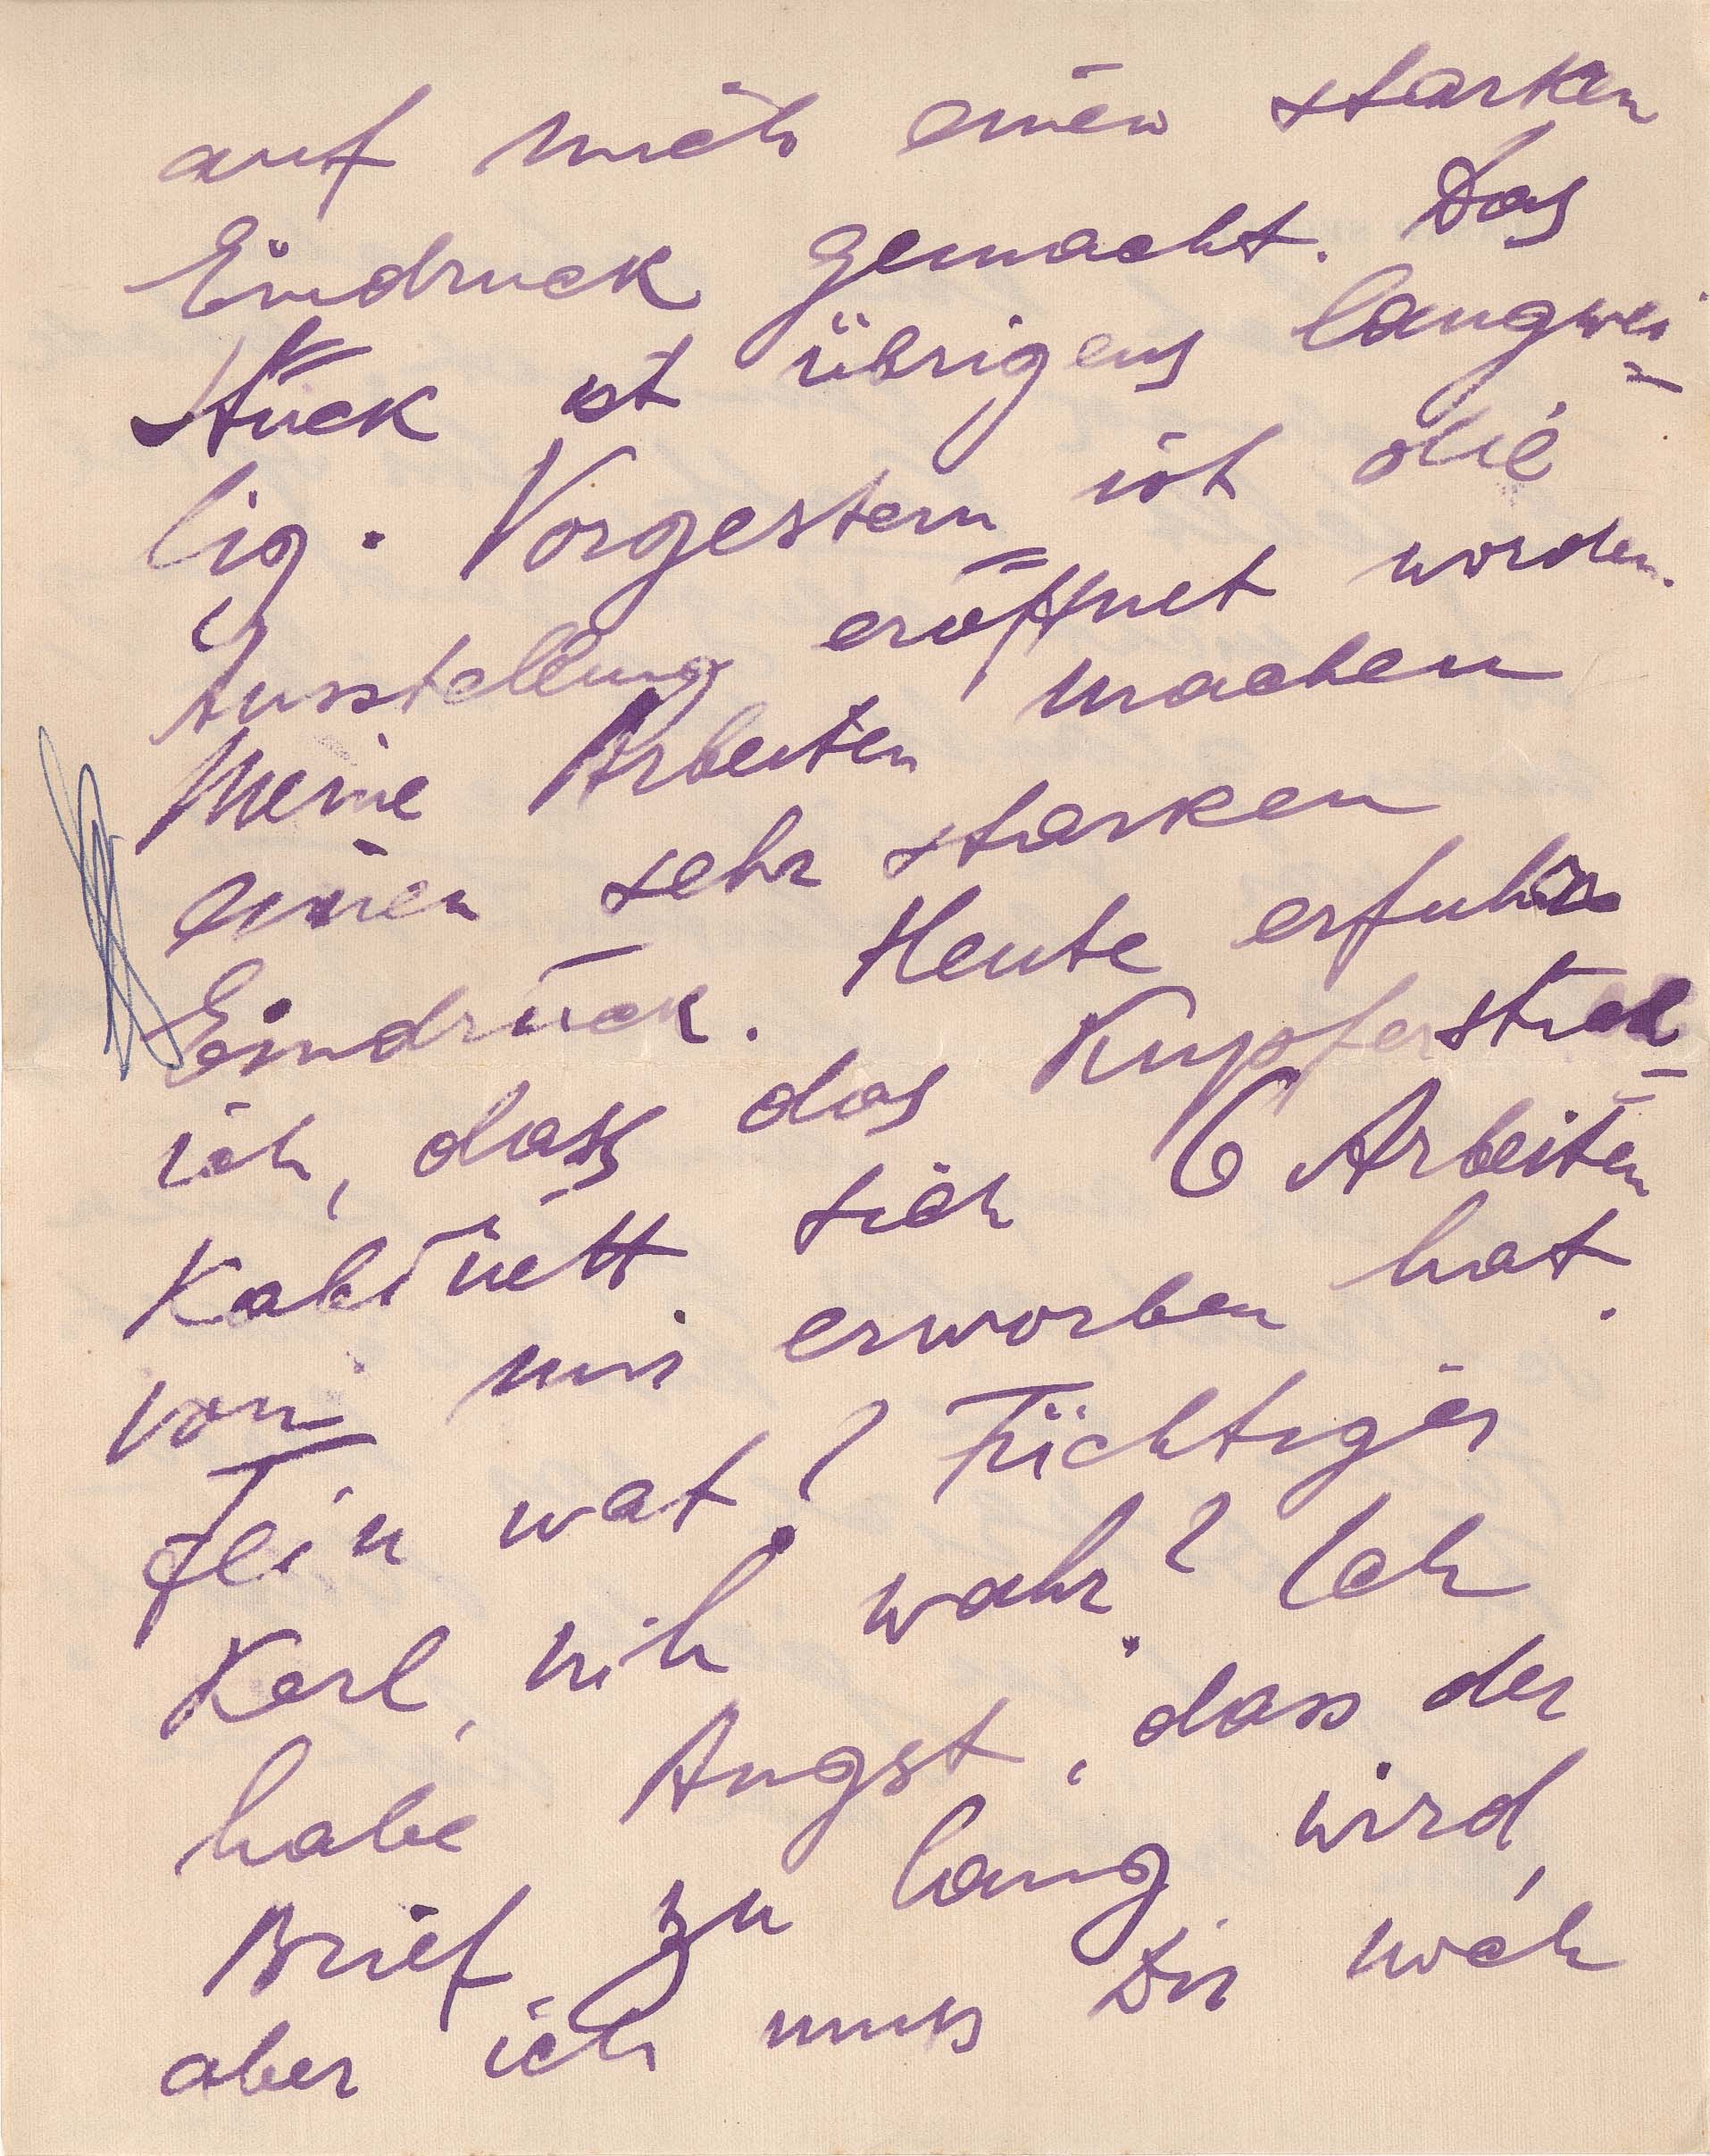 auf mich einen starken
Eindruck gemacht. Das
Stück ist übrigens langwei=
lig. Vorgestern ist die
Ausstellung eröffnet worden.
Meine Arbeiten machen
einen sehr starken
Eindruck. Heute erfuhr
ich, dass das Kupferstich=
Kabinett sich 6 Arbeiten
von mir erworben hat.
Fein wat? Tüchtiger
Kerl, nich wahr? Ich
habe Angst, dass der
Brief zu lang wird,
aber ich muss Dir noch